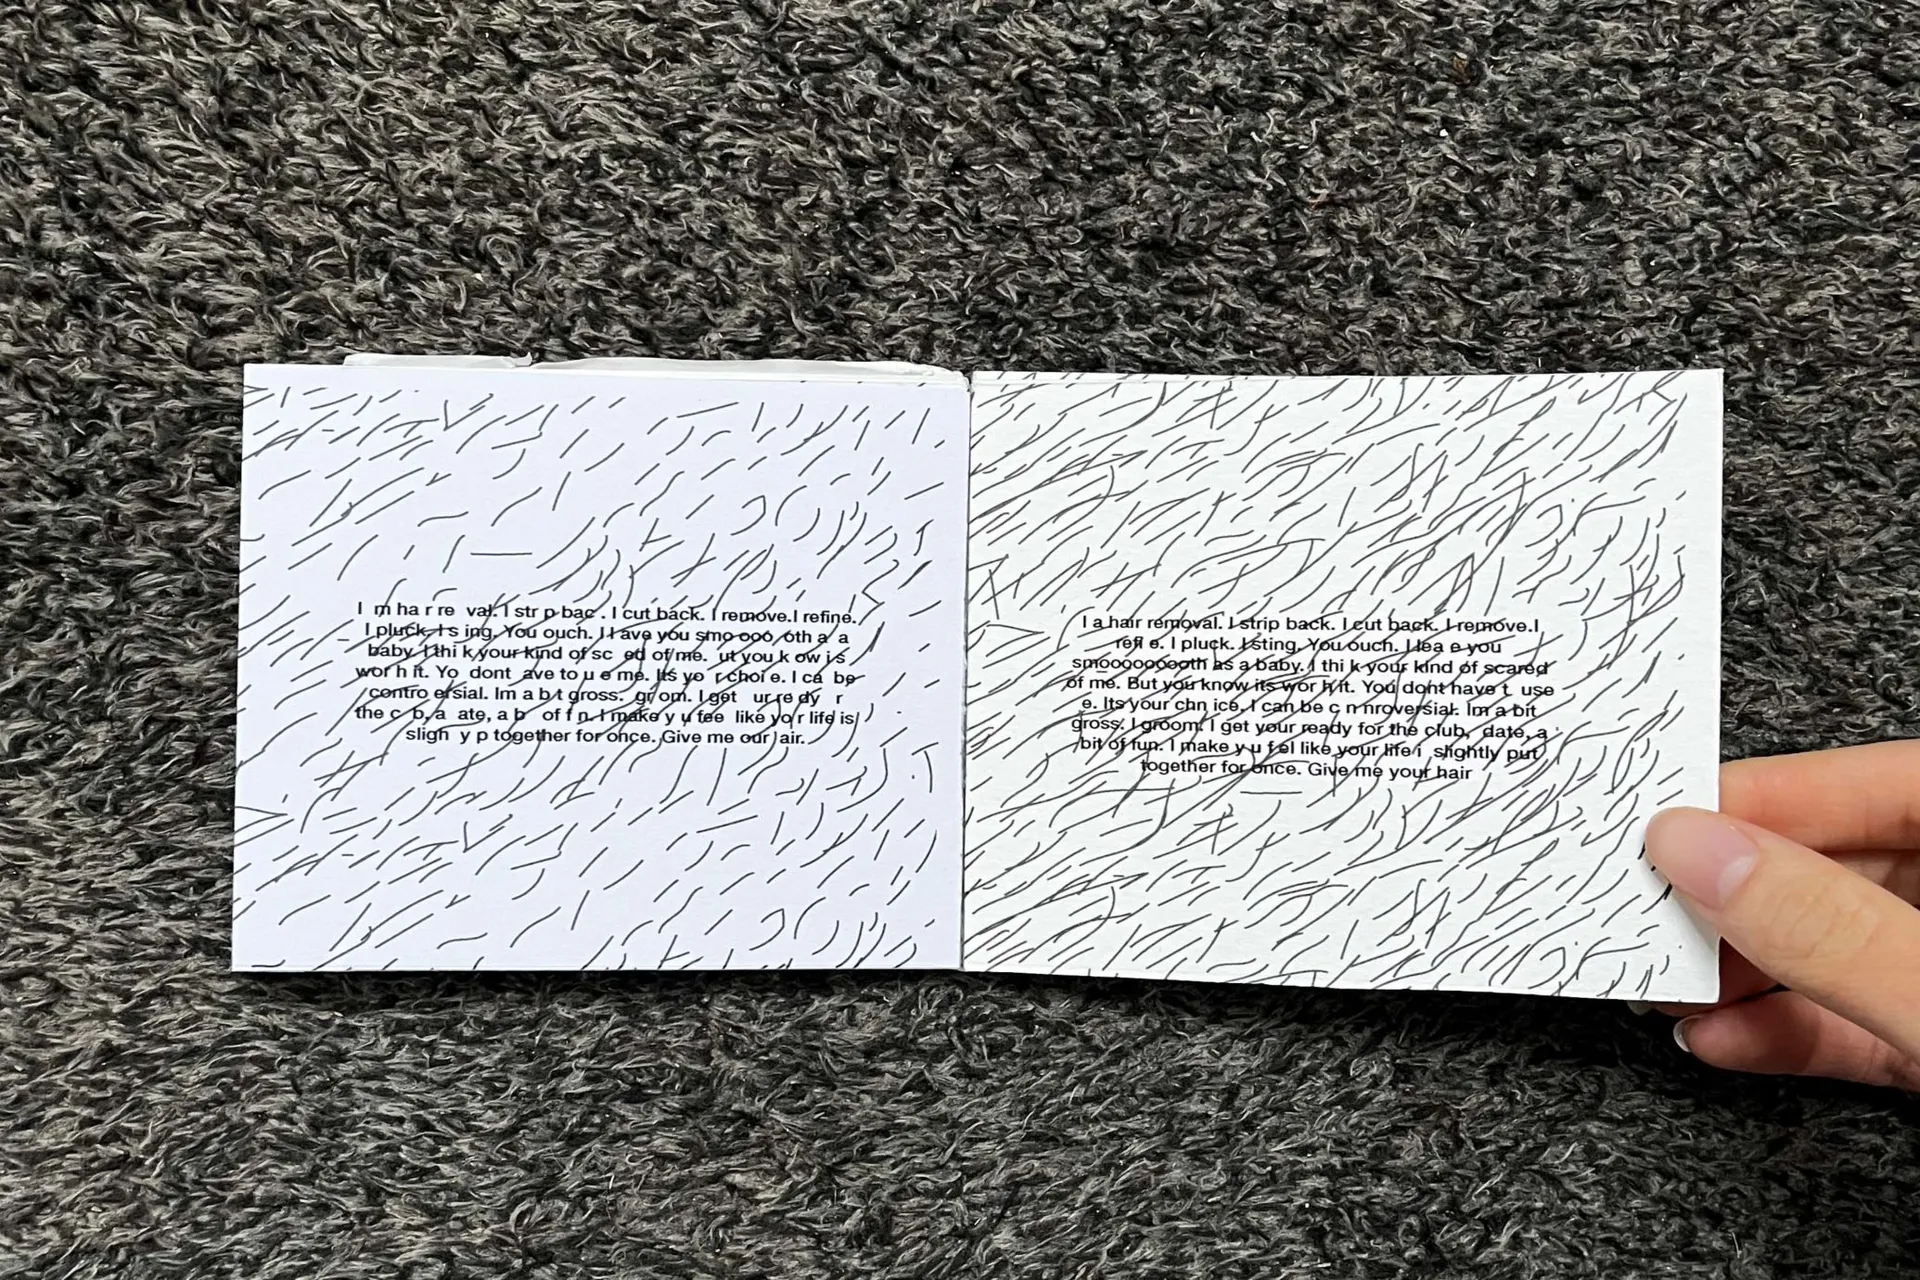 I m ha r re val. I str p bac . I cut back. I remove.I refine.
I pluck. I s ing. You ouch. I l ave you smo ooo oth a a
baby. I thi k your kind of sc ed of me. ut you k ow i s
wor h it. Yo dont ave to u e me. Its yo r choi e. I ca be
contro ersial. Im a b t gross. gr om. I get ur re dy r
the c b, a ate, a b of f n. I make y u fee like yo r life is
sligh y p together for once. Give me our air.
I a hair removal. I strip back. I cut back. I remove.I
refi e. I pluck. I sting. You ouch. I lea e you
smooooooooth as a baby. I thi k your kind of scared
of me. But you know its wor h it. You dont have t use
e. Its your chn ice. I can be c n nroversial. Im a bit
gross. I groom. I get your ready for the club, date, a
bit of fun. I make y u f el like your life i slightly put
together for once. Give me your hair